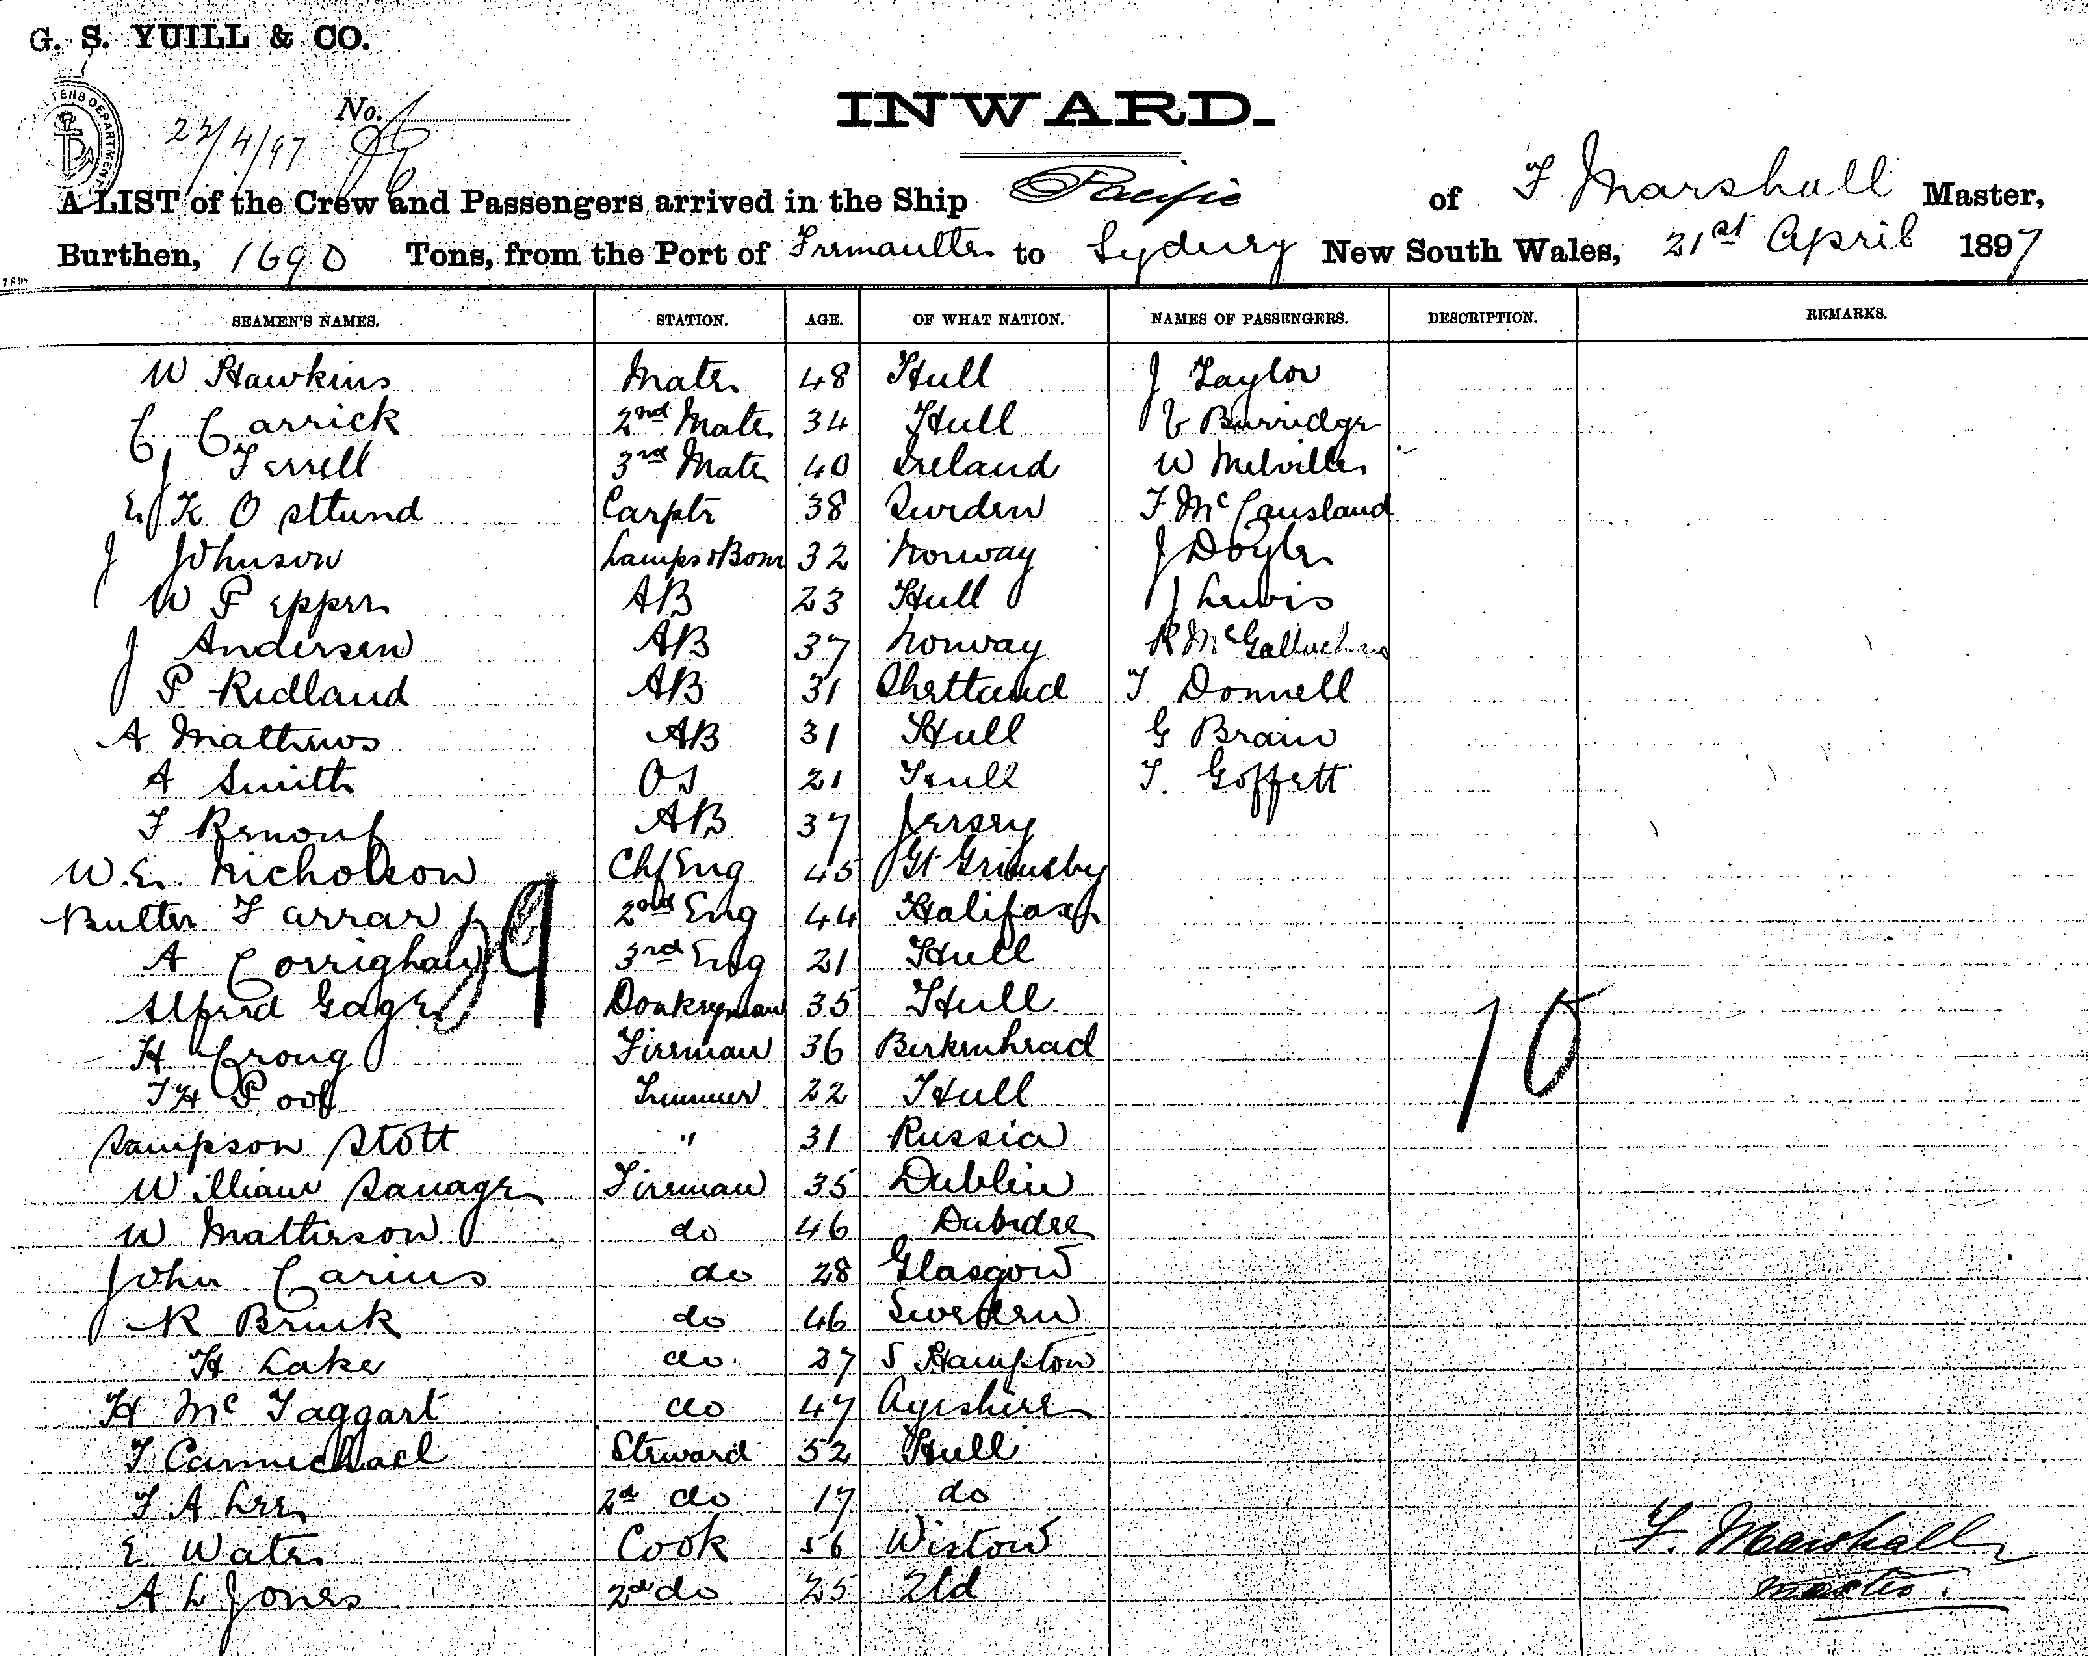 G. S. YUILL & CO.
No.
22/4/97
INWARD.
A LIST of the Crew and Passengers arrived in the Ship Pacific of F Marshall Master,
Burthen, 1690 Tons, from the Port of Fremantle to Sydney New South Wales, 21st April 1897
SEAMEN'S NAMES. STATION. AGE. OF WHAT NATION. NAMES OF PASSENGERS. DESCRIPTION. REMARKS.
W Hawkins Mate 48 Hull J Taylor
C Carrick 2nd Mate 34 Hull Burridge
J Ferrell 3rd Mate 40 Ireland W Melville
E K Ostlund Carptr 38 Sweden F McCausland
J Johnson Lamps & Bosn 32 Norway J Doyle
W Pepper AB 23 Hull J Lewis
J Andersen AB 37 Norway R
P Ridland AB 31 Shetland T Donnell
A Mathews AB 31 Hull G Brain
A Smith OS 21 Hull T. Goffett
F Renouf AB 37 Jersey
W.E. Nicholson Chf Eng 45 Gt Grimsby
Butler Farrar 2nd Eng 44 Halifax
A Corrighan 3rd Eng 21 Hull
Alfred Gage Donkeyman 35 Hull
H Crong Fireman 36 Birkenhead
T H Poof Trimmer 22 Hull
Sampson Stott " 31 Russia
William Savage Fireman 35 Dublin
W Matheson do 46 Dundee
John Carins do 28 Glasgow
R Brink do 46 Sweden
H Lake do 27 S Hampton
H McTaggart do 47 Ayrshire
T Carmichael Steward 52 Hull
F A Lee 2nd do 17 do
E Wate Cook 56 Wistow
A L Jones 2nd do 25 Qld
10
F. Marshall
Master.